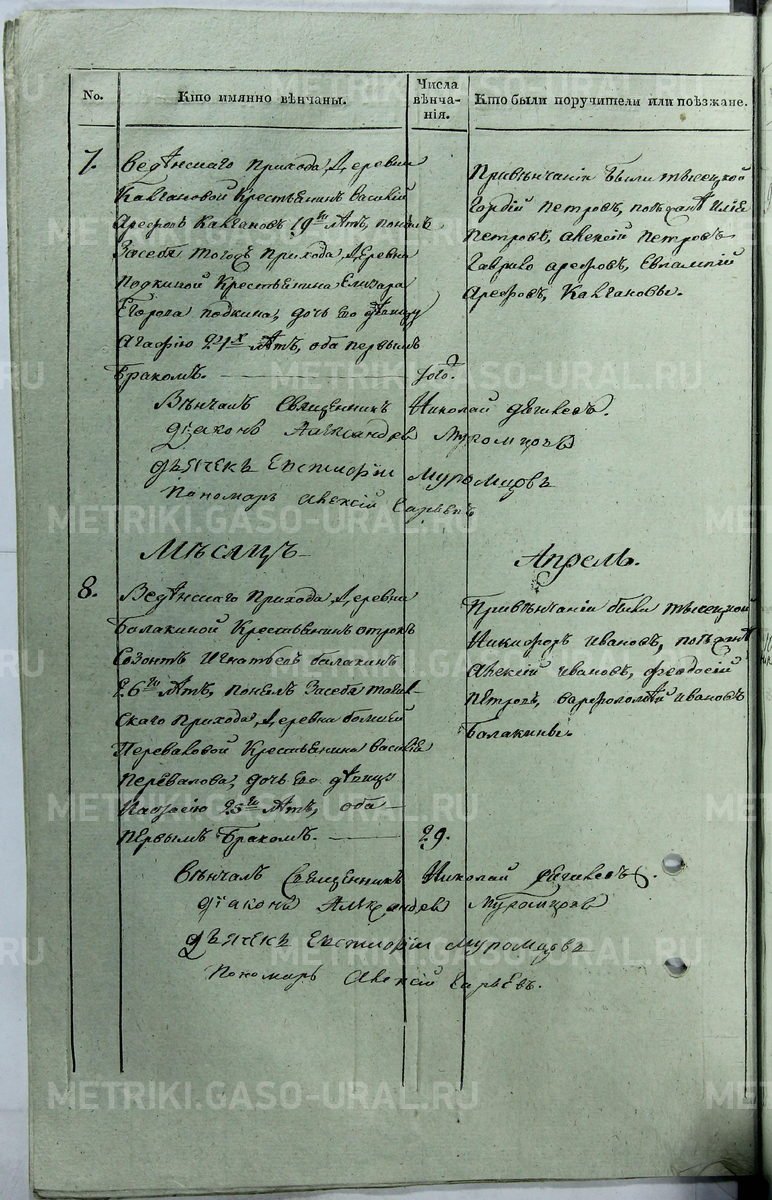 No.
Кто имянно вѣнчаны.
Числа вѣнча-нія.
Кто были поручители или поѣзжане.
7.
Веденскаго прихода, деревни
Кайгановой Крестьянинъ Василій
Арефовъ Кайгановъ 19ти лѣтъ, понялъ
Засебя тогожъ прихода, деревни
Подкиной Крестьянина Елизара
Егорова Подкина, дочь его дѣвицу
Агафію 24х лѣтъ, оба первымъ
Бракомъ.
При вѣнчаніи были тысецкой
Гордій Петровъ, поѣзжанѣ Илія
Петровъ, Алексій Петровъ
Гаврило Арефовъ, Евлампій
Арефовъ, Кайгановы.
Вѣнчалъ Священникъ Николай
Діаконъ Александръ Муромцовъ
Дьячекъ Муромцовъ
Пономарь Алексій
Мѣсяцъ
Апрель.
8.
Веденскаго прихода, деревни
Балакиной Крестьянинъ отрокъ
Созонтъ Игнатьевъ Балакинъ
26ти лѣтъ, понялъ Засебя
скаго прихода, деревни Большей
Переваловой Крестьянина Василія
Перевалова, дочь его дѣвицу
25ти лѣтъ, оба
первымъ Бракомъ.
29.
При вѣнчаніи были тысецкой
Никифоръ Ивановъ, поѣзжанѣ
Алексій Ивановъ, Феодосій
Петровъ, Варфоломѣй Ивановъ
Балакины.
Вѣнчалъ Священникъ Николай
Діаконъ Александръ Муромцовъ
Дьячекъ Муромцовъ
Пономарь Алексій
METRIKI.GASO-URAL.RU